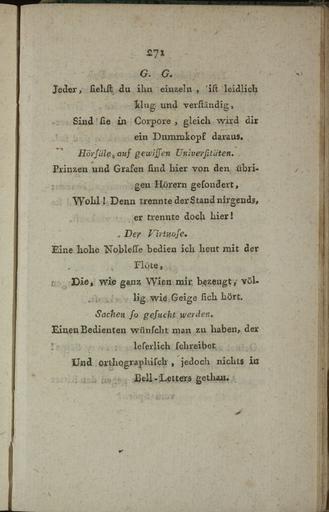 271
G. G.
Jeder, ſiehſt du ihn einzeln, iſt leidlich
klug und verſtändig,
Sind ſie in Corpore, gleich wird dir
ein Dummkopf daraus.
Hörſäle, auf gewiſſen Univerſitäten.
Prinzen und Grafen ſind hier von den übri-
gen Hörern geſondert,
Wohl! Denn trennte der Stand nirgends,
er trennte doch hier!
Der Virtuoſe.
Eine hohe Nobleſſe bedien ich heut mit der
Flöte,
Die, wie ganz Wien mir bezeugt, völ-
lig wie Geige ſich hört.
Sachen ſo geſucht werden.
Einen Bedienten wünſcht man zu haben, der
leſerlich ſchreibet
Und orthographiſch, jedoch nichts in
Bell-Letters gethan.